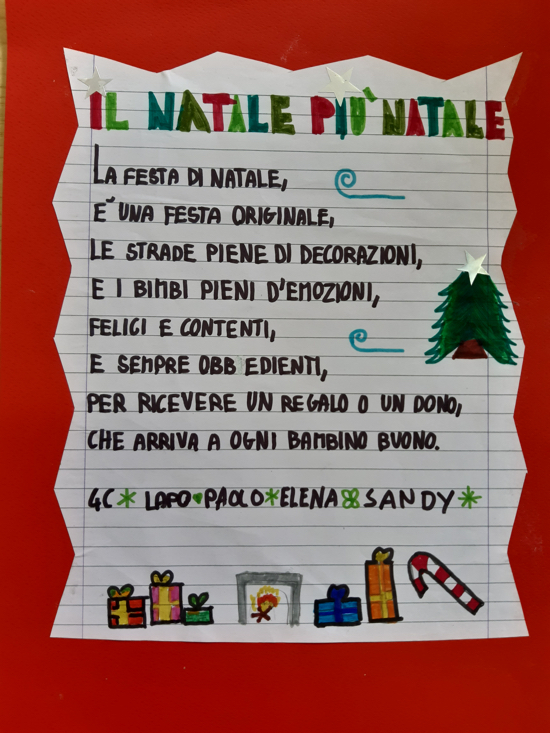 IL NATALE PIÙ NATALE
LA FESTA DI NATALE,
E' UNA FESTA ORIGINALE,
LE STRADE PIENE DI DECORAZIONI,
E I BIMBI PIENI D'EMOZIONI,
FELICI E CONTENTI,
E SEMPRE OBB EDIENTI,
PER RICEVERE UN REGALO O UN DONO,
CHE ARRIVA A OGNI BAMBINO BUONO.
4C LAPO PAOLO ELENA SANDY